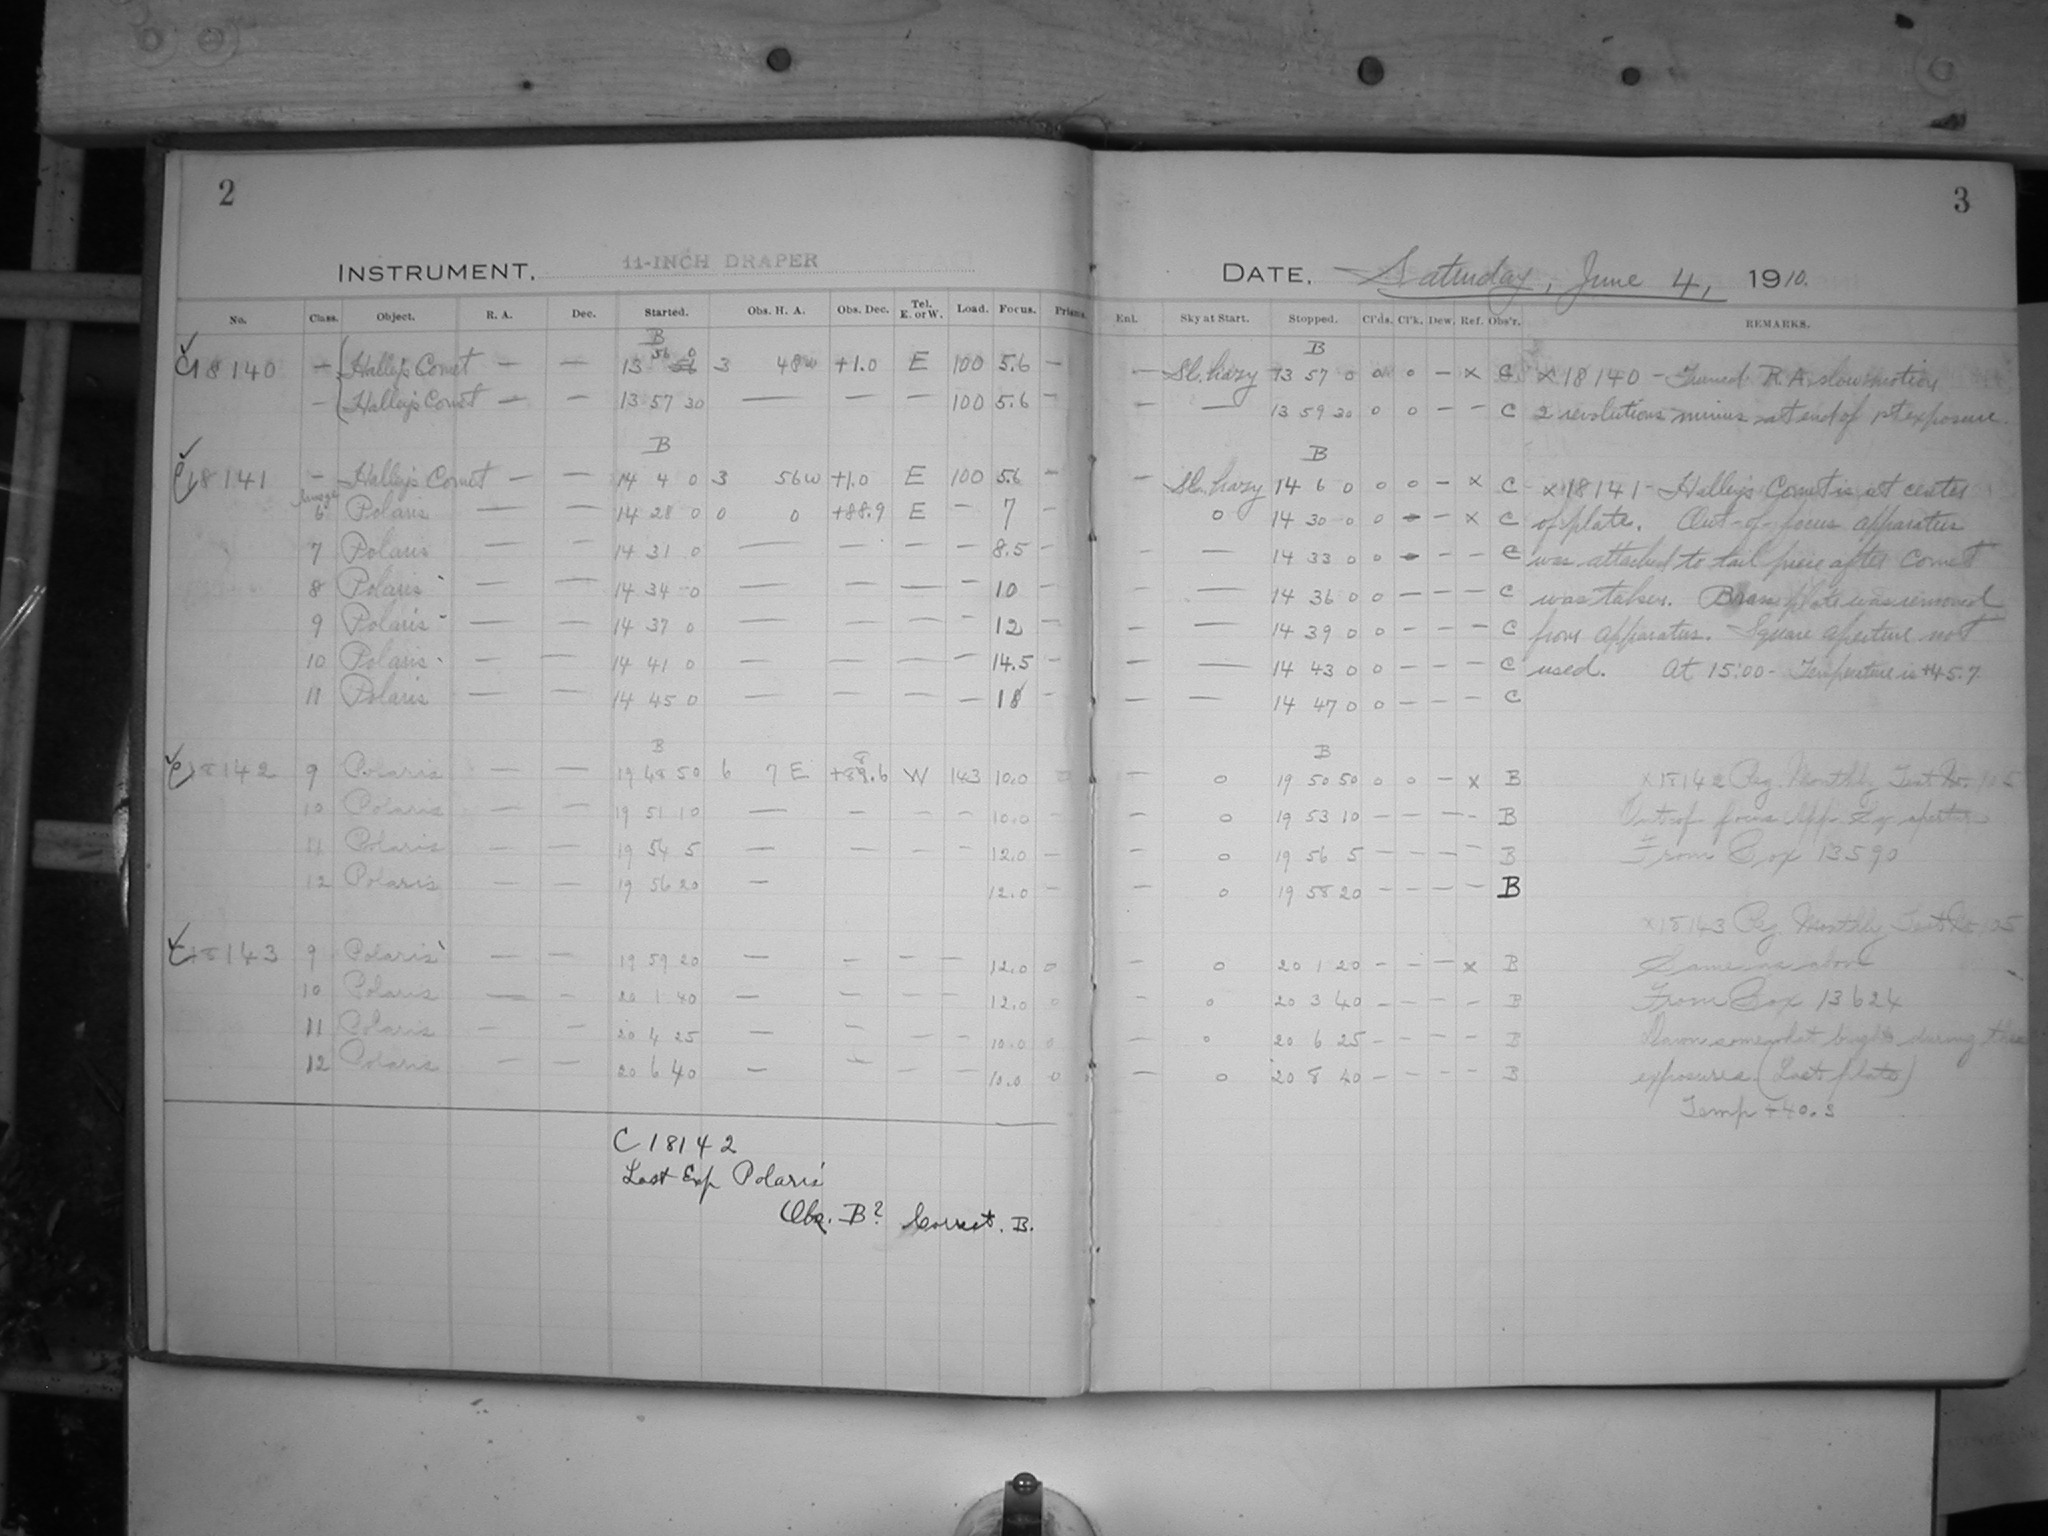 2
INSTRUMENT. 11-INCH DRAPER
No. Class. Object. R. A. Dec. Started. Obs. H. A. Obs. Dec. Tel. E. or W. Load. Focus. Prisms.
B
C18140 — Halley's Comet — — 13 56 0 3 48 w +1.0 E 100 5.6 —
— Halley's Comet — — 13 57 30 — — — 100 5.6 —
B
C18141 — Halley's Comet — — 14 4 0 3 56 w +1.0 E 100 5.6 —
Image
6 Polaris — — 14 28 0 0 0 +88.9 E — 7 —
7 Polaris — — 14 31 0 — — — — 8.5 —
8 Polaris — — 14 34 0 — — — — 10 —
9 Polaris — — 14 37 0 — — — — 12 —
10 Polaris — — 14 41 0 — — — — 14.5 —
11 Polaris — — 14 45 0 — — — — 18 —
B
C18142 9 Polaris — — 19 48 50 6 7 E W 143 10.0
10 Polaris — — 19 51 10 — — — — 10.0 —
11 Polaris — — 19 54 5 — — — — 12.0 —
12 Polaris — — 19 56 20 — 12.0 —
C18143 9 Polaris — — 19 59 20 — — — — 12.0 0
10 Polaris — — 20 1 40 — — — — 12.0 0
11 Polaris — — 20 4 25 — — — — 10.0 0
12 Polaris — — 20 6 40 — — — — 10.0 0
C18142
Last Exp Polaris
Obs. B? Correct. B.
3
DATE. Saturday, June 4, 1910.
Enl. Sky at Start. Stopped. Cl'ds. Cl'k. Dew. Ref. Obs'r. REMARKS.
B
— Sl. hazy 13 57 0 0 0 — x C x18140 - Turned R.A. slow motion
— — 13 59 30 0 0 — — C 2 revolutions minus at end of 1st exposure.
B
— Sl. hazy 14 6 0 0 0 — x C x18141 - Halley's Comet is at center
0 14 30 0 0 — — x C of plate. Out-of-focus apparatus
— — 14 33 0 0 — — — C was attached to tail piece after Comet
— — 14 36 0 0 — — — C was taken. Brass plate was removed
— — 14 39 0 0 — — — C from apparatus. Square aperture not
— — 14 43 0 0 — — — C used. At 15:00 - Temperature is +45.7
— — 14 47 0 0 — — — C
B
— 0 19 50 50 0 0 — x B x18142 Reg. Monthly Test No. 105
— 0 19 53 10 — — — — B Out of focus App. Sq aperture
— 0 19 56 5 — — — — B From Box 13590
— 0 19 58 20 — — — — B
x18143 Reg. Monthly Test No. 105
— 0 20 1 20 — — — x B Same as above
— 0 20 3 40 — — — — B From Box 13624
— 0 20 6 25 — — — — B Dawn somewhat bright during these
— 0 20 8 40 — — — — B exposures (Last plate)
Temp +40.3